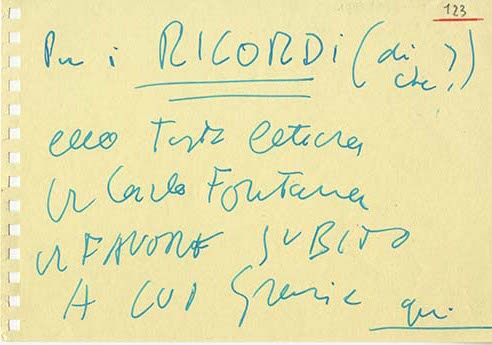 123
Per i RICORDI (di che?)
ecco Testo lettera
x Carlo Fontana
x FAVORE SUBITO
A LUI Grazie qui.